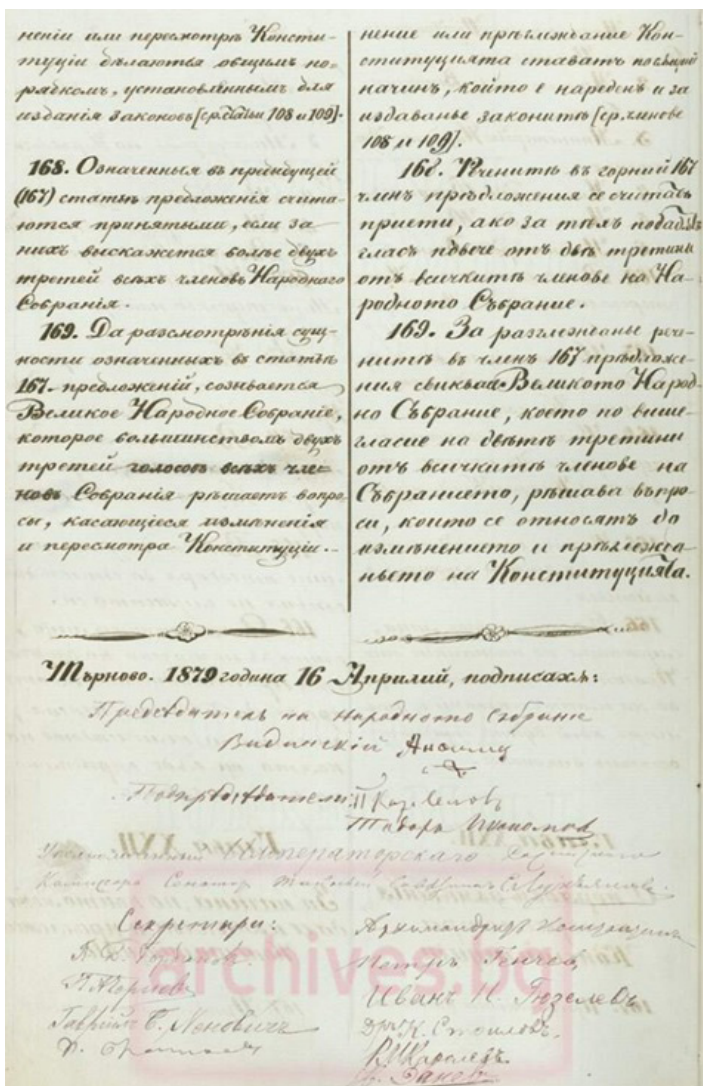 неніи или пересмотрѣ Консти-
туціи дѣлаются общимъ по-
рядкомъ, установленнымъ для
изданія законовъ [ср. статьи 108 и 109].
168. Означенныя въ предыдущей
(167) статьѣ предложенія счита-
ются принятыми, если за
нихъ выскажется болѣе двухъ
третей всѣхъ членовъ Народнаго
Собранія.
169. Для разсмотрѣнія сущ-
ности означенныхъ въ статьѣ
167. предложеній, созывается
Великое Народное Собраніе,
которое большинствомъ двухъ
третей голосовъ всѣхъ чле-
новъ Собранія рѣшаетъ вопро-
сы, касающіеся измѣненія
и пересмотра Конституціи.
нение или прѣглѣждание Кон-
ституцията ставатъ по общий
начинъ, който е нареденъ и за
издаванье законитѣ [ср. членове
108 и 109].
168. Речениитѣ въ горний 167
членъ прѣдложения се считатъ
приети, ако за тѣхъ подадѫтъ
гласъ повече отъ двѣ третини
отъ всичкитѣ членове на На-
родното Събрание.
169. За разглѣждание рече-
нитѣ въ членъ 167 прѣдложе-
ния свиква се Великото Народ-
но Събрание, което по више-
гласие на двѣтѣ третини
отъ всичкитѣ членове на
Събранието, рѣшава въпро-
си, които се относятъ до
измѣнението и прѣглѣжда-
ньето на Конституцията.
Търново. 1879 година 16 Априлий, подписахѫ:
Предсѣдатель на Народното Събрание
Видинскій Анѳимъ
Подпрѣдсѣдатели: П Каравеловъ
Тодоръ Икономовъ
Императорскаго
Коммиссара Сенаторъ
Секретари:
Архимандритъ
Петръ Генчовъ
Иванъ Н. Гюзелевъ
Гавріилъ
Дръ К. Стоиловъ.
archives.bg